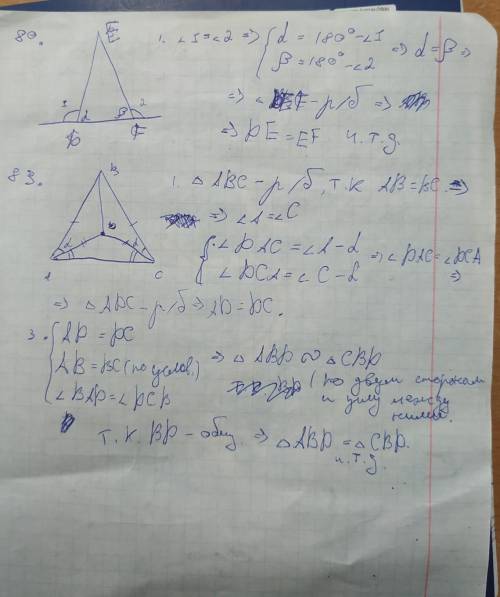 80.
E
1 α β 2
D F
1. ∠1=∠2 ⇒ { α = 180° - ∠1
β = 180° - ∠2 ⇒ α=β ⇒
⇒ - р/б ⇒
⇒ DE = EF ч.т.д.
83.
B
D
A C
1. △ ABC - р/б, т.к AB = BC. ⇒
⇒ ∠A=∠C
{ ∠DAC = ∠A-α
∠DCA = ∠C-α ⇒ ∠DAC=∠DCA
⇒
⇒ △ ADC - р/б ⇒ AD = DC.
3. { AD = DC
AB = BC (по услов.)
∠BAD = ∠DCB ⇒ △ ABD ∾ △ CBD
(по двум сторонам
и углу между
ними.
т.к. BD - общ. ⇒ △ABD = △CBD.
ч.т.д.